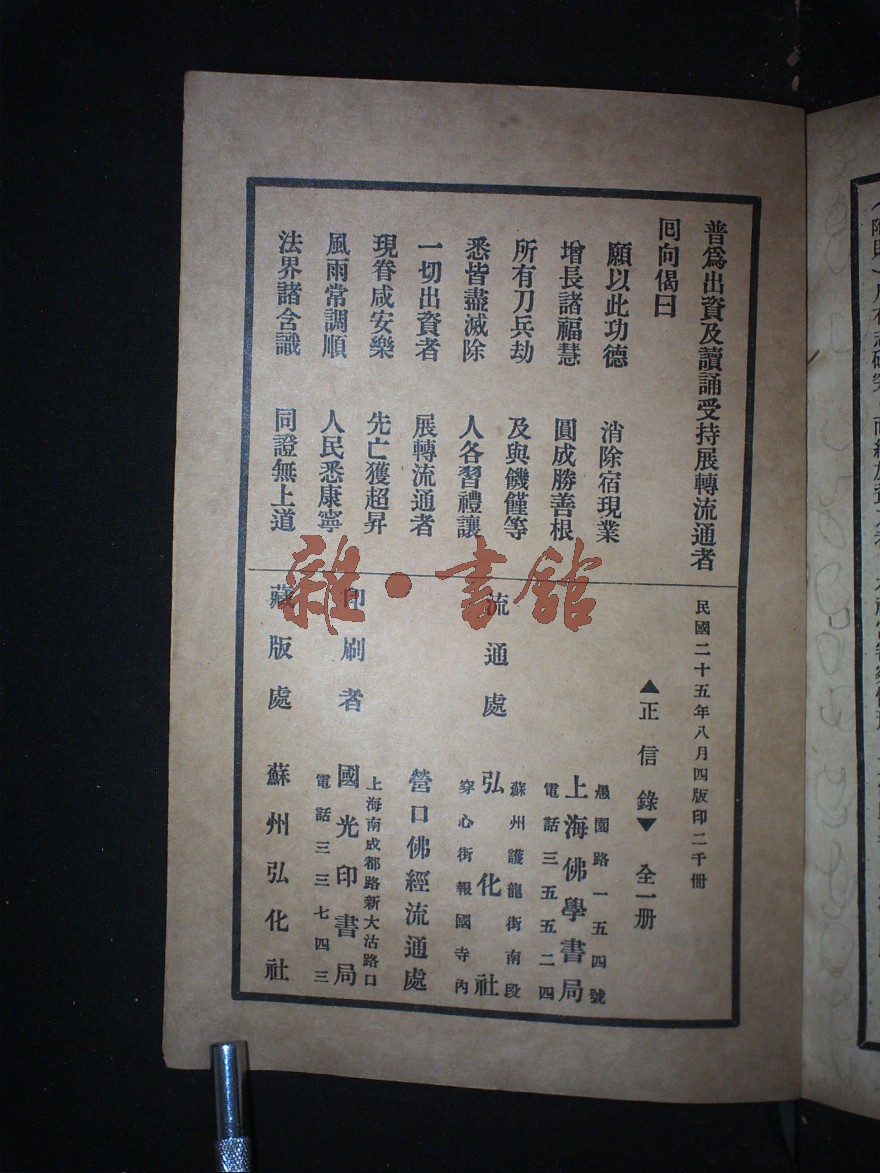 普爲出資及讀誦受持展轉流通者
囘向偈曰
願以此功德　消除宿現業
增長諸福慧　圓成勝善根
所有刀兵劫　及與饑饉等
悉皆盡滅除　人各習禮讓
一切出資者　展轉流通者
現眷咸安樂　先亡獲超昇
風雨常調順　人民悉康寧
法界諸含識　同證無上道
民國二十五年八月四版印二千冊
▲正信錄▼　全一册
流通處
愚園路一五四號
上海佛學書局
電話三五五二四
蘇州護龍街南段
弘化社
穿心街報國寺內
營口佛經流通處
印刷者
上海南成都路新大沽路口
國光印書局
電話三三七四三
藏版處　蘇州弘化社
雜·書館